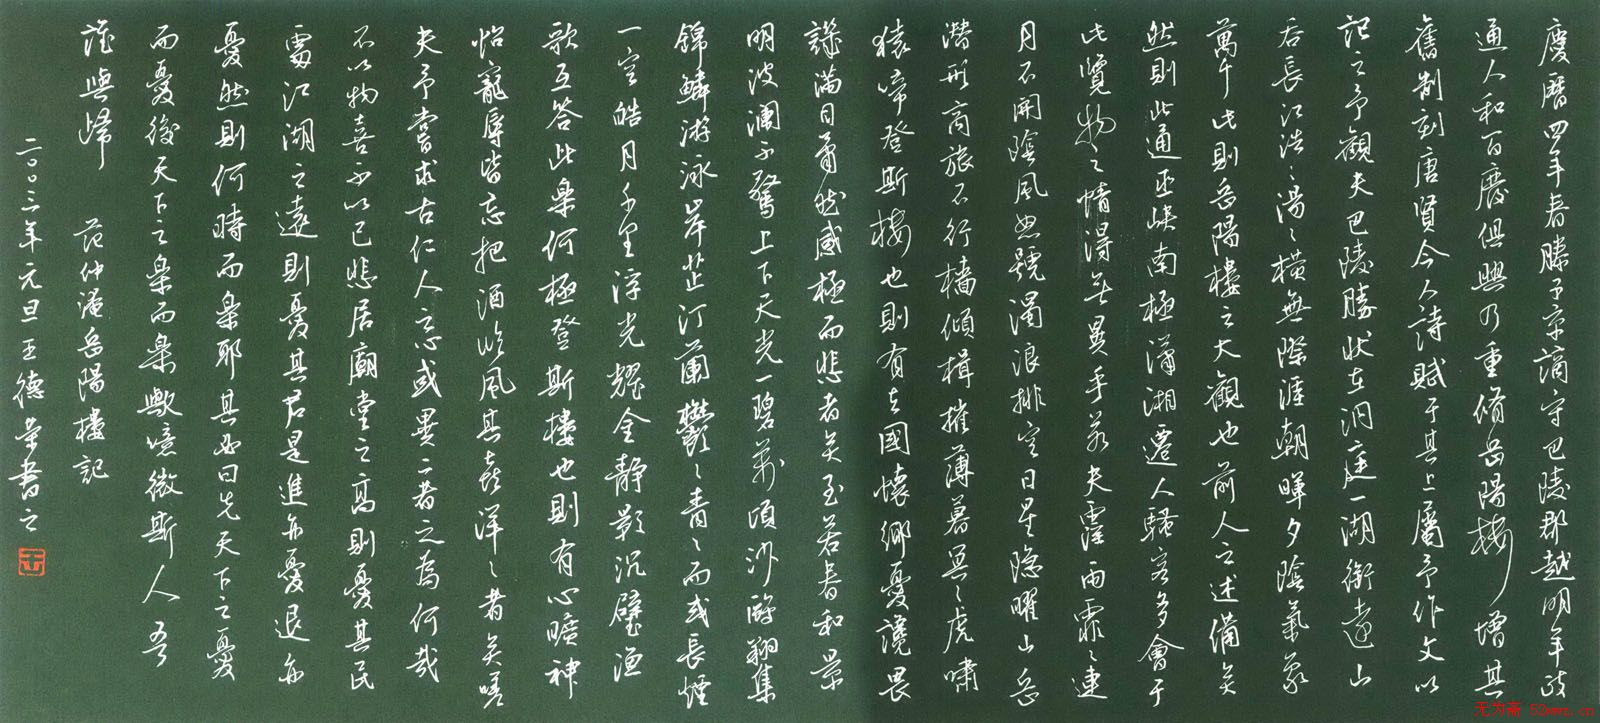 慶曆四年春滕子京謫守巴陵郡越明年政
通人和百廢俱興乃重脩岳陽樓增其
舊制刻唐賢今人詩賦于其上屬予作文以
記之予觀夫巴陵勝狀在洞庭一湖銜遠山
吞長江浩〻湯〻橫無際涯朝暉夕陰氣象
萬千此則岳陽樓之大觀也前人之述備矣
然則北通巫峽南極瀟湘遷人騷客多會于
此覽物之情得無異乎若夫霪雨霏〻連
月不開陰風怒號濁浪排空日星隱曜山岳
潛形商旅不行檣傾楫摧薄暮冥〻虎嘯
猿啼登斯樓也則有去國懷鄉憂讒畏
譏滿目蕭然感極而悲者矣至若春和景
明波瀾不驚上下天光一碧萬頃沙鷗翔集
錦鱗游泳岸芷汀蘭鬱〻青〻而或長煙
一空皓月千里浮光耀金靜影沉璧漁
歌互答此樂何極登斯樓也則有心曠神
怡寵辱皆忘把酒臨風其喜洋〻者矣嗟
夫予嘗求古仁人之心或異二者之為何哉
不以物喜不以己悲居廟堂之高則憂其民
處江湖之遠則憂其君是進亦憂退亦
憂然則何時而樂耶其必曰先天下之憂
而憂後天下之樂而樂歟噫微斯人吾
誰與歸 范仲淹岳陽樓記
二〇〇三年元旦王德榮書之
王
无为斋 52wwz.cn